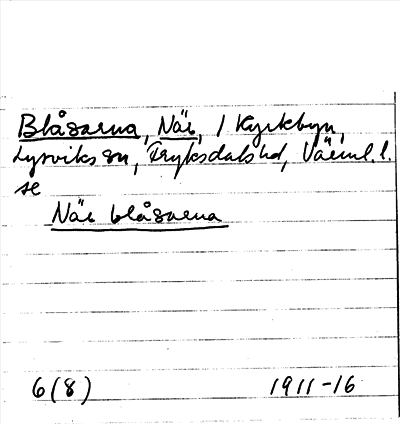 Blåsarna, När, i Kyrkbyn,
Lysviks sn, Fryksdals hd, Värml. l.
se
När blåsarna
6(8) 1911-16